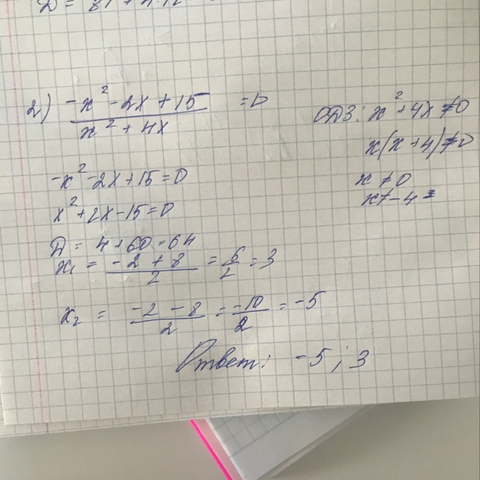 2) (-x² - 2x + 15)/(x² + 4x) = 0
ОДЗ: x² + 4x ≠ 0
x(x + 4) ≠ 0
x ≠ 0
x ≠ -4
-x² - 2x + 15 = 0
x² + 2x - 15 = 0
D = 4 + 60 = 64
x₁ = (-2 + 8)/2 = 6/2 = 3
x₂ = (-2 - 8)/2 = -10/2 = -5
Ответ: -5; 3